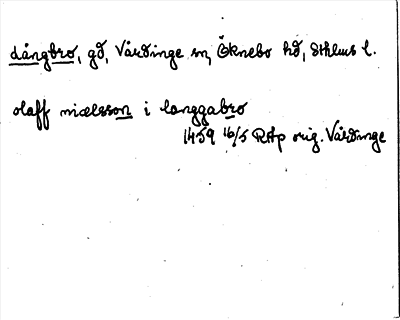 Långbro, gd, Vårdinge sn, Öknebo hd, Sthlms l.
olaff niælsson i langgabro
1459 16/5 RAp orig. Vårdinge